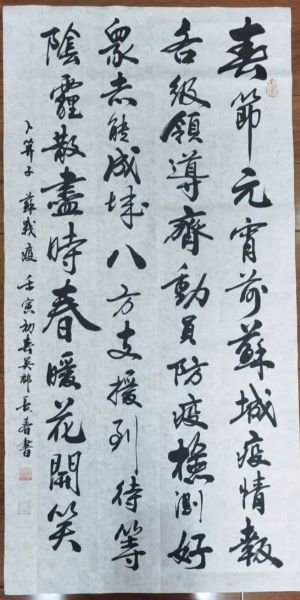 春節元宵前蘇城疫情報
各級領導齊動員防疫檢測好
眾志能成城八方支援到待等
陰霾散盡時春暖花開笑
卜算子 蘇戰疫 壬寅初春吴郡長書